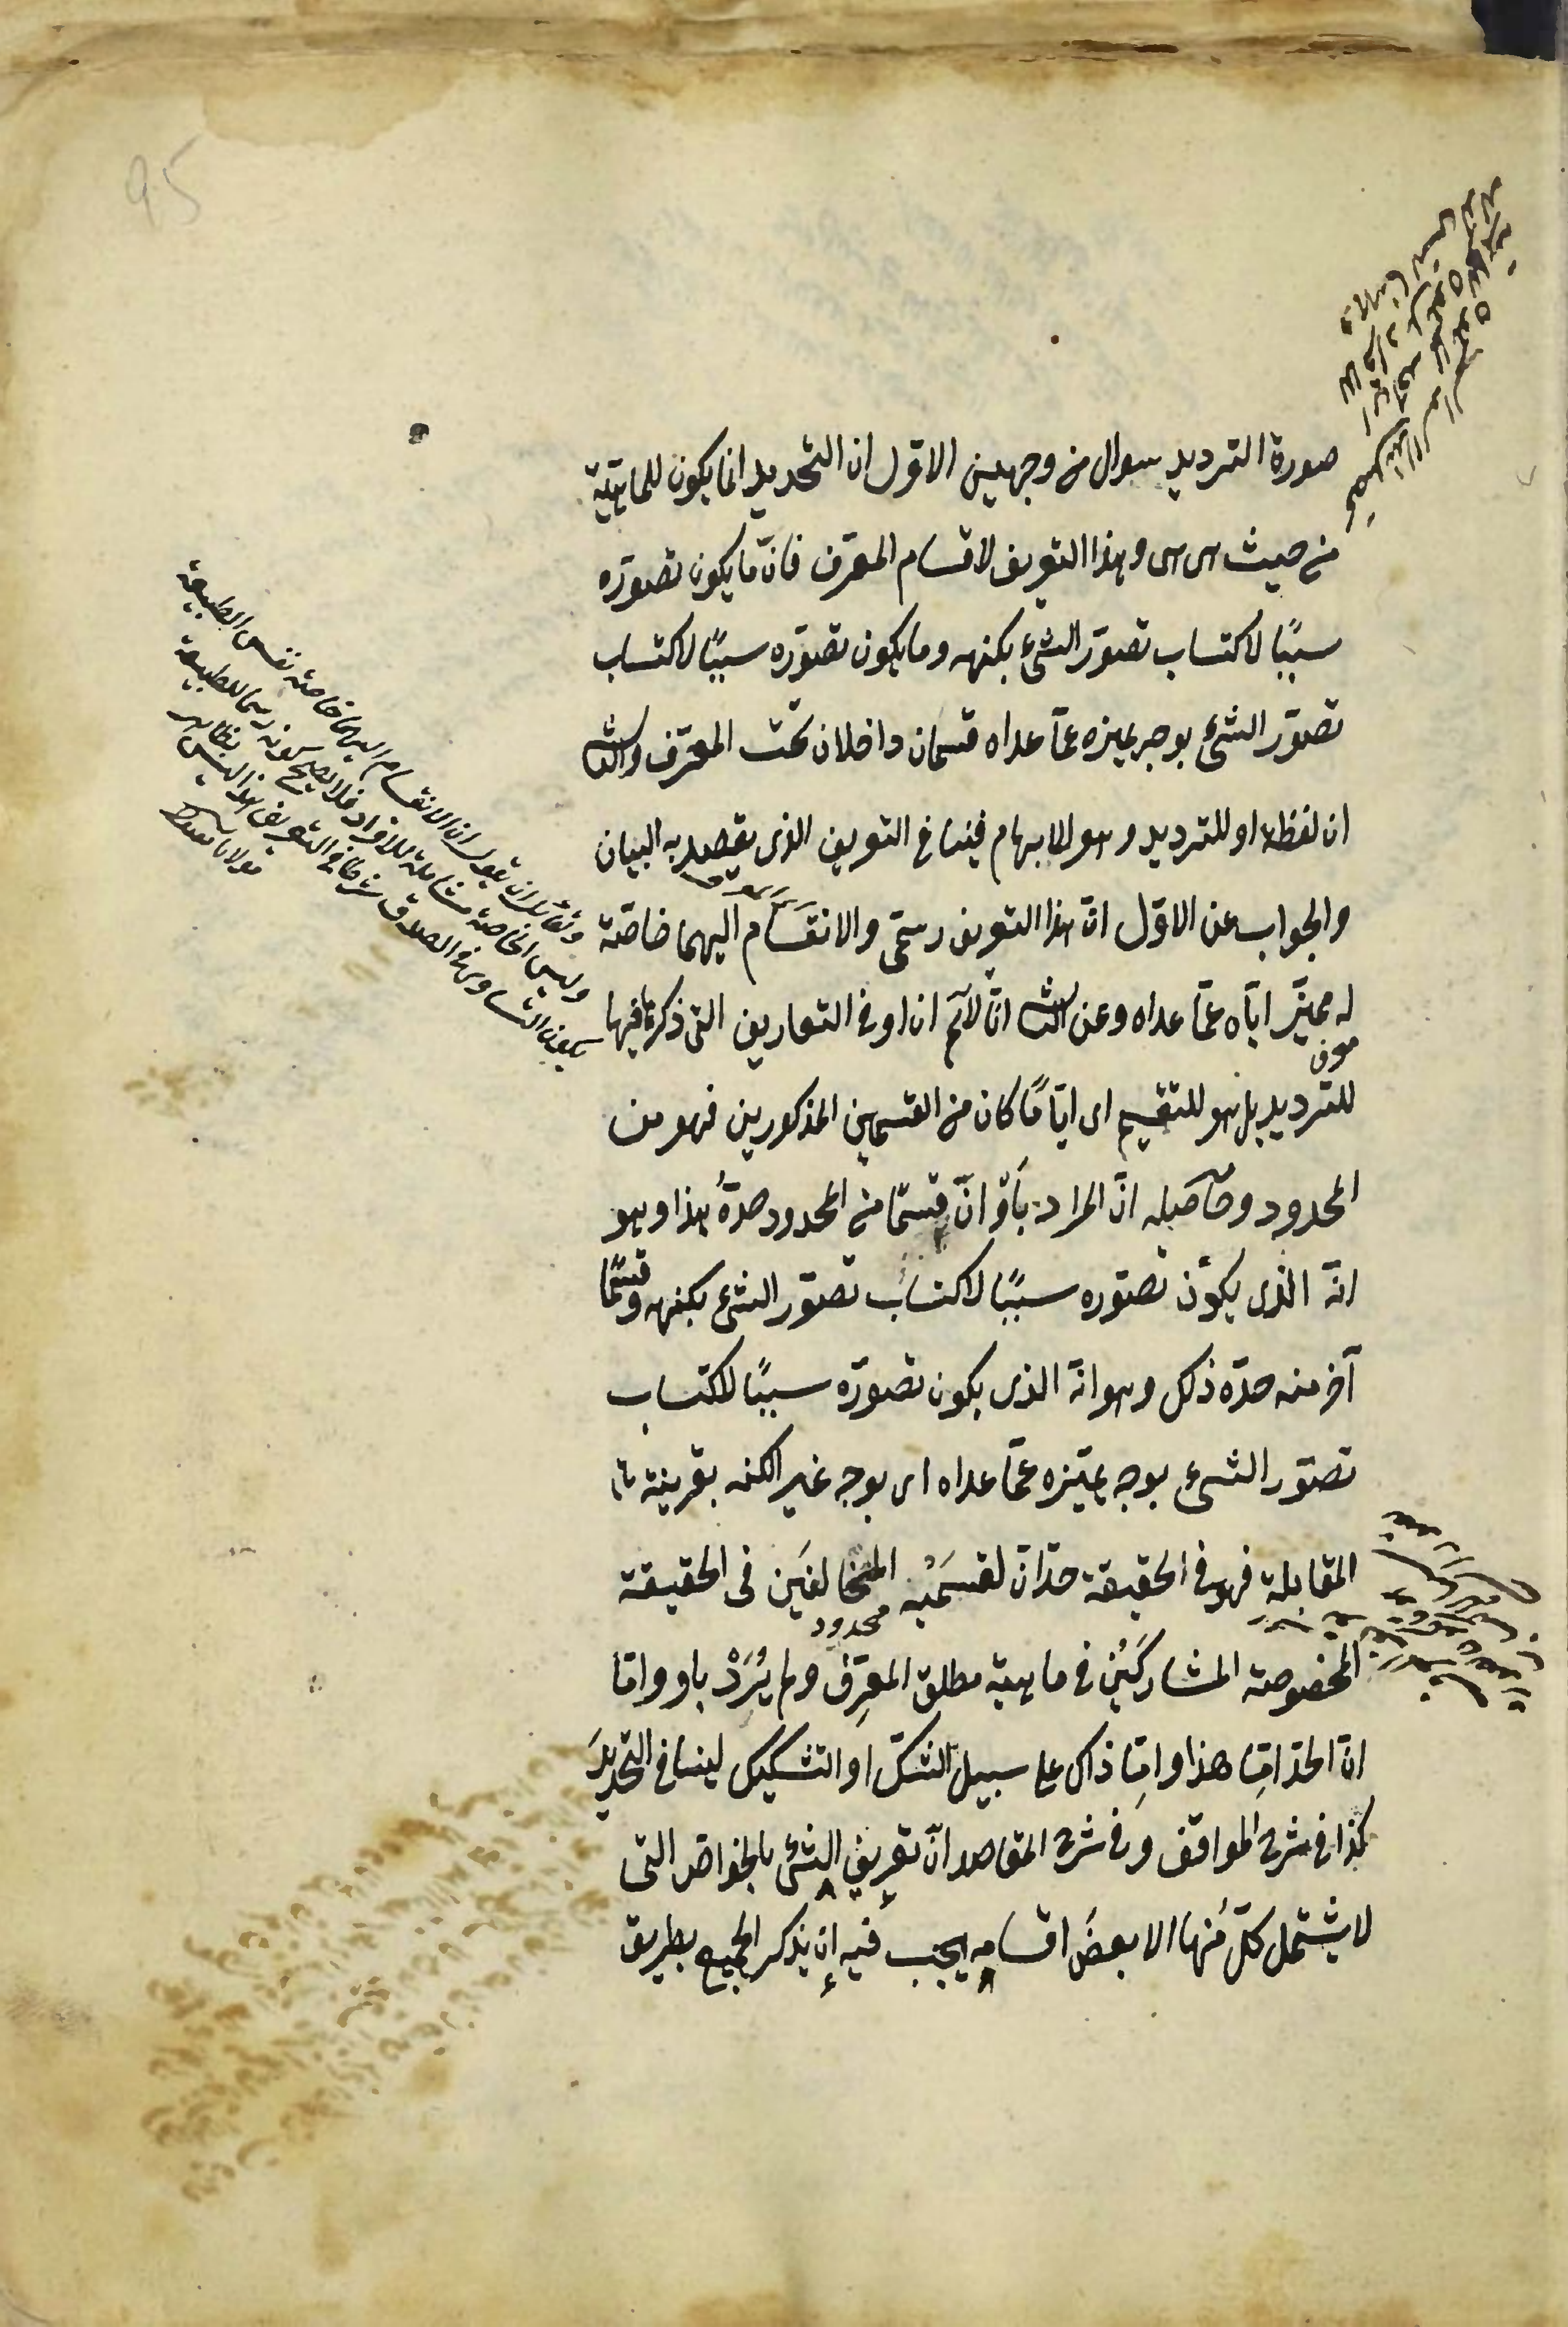 95
صورة الترديد سوال من وجهين الاول ان التحديد انما يكون للماهيّة
من حيث هى هى وهذا التعريف لاقسام المعرّف فانّ ما يكون تصوّره
سببًا لاكتساب تصوّر الشئ بكنهه وما يكون تصوّره سببًا لاكتساب
تصوّر الشئ بوجه يميزه عمّا عداه قسمان داخلان تحت المعرّف والثا
ان لفظة او للترديد وهو الابهام فينافى التعريف الذى يقصد به البيان
والجواب عن الاوّل انّ هذا التعريف رسمىّ والانقسام اليهما خاصّة
له مميّز ايّاه عمّا عداه وعن الثا انّا لا نم ان او فى التعاريف التى ذكر فيها
للترديد بل هو للتقسيم اى ايّا مّا كان من القسمين المذكورين فهو من
المحدود وحاصله انّ المراد بأوْ انّ قسمًا من المحدود حدّهُ هذا وهو
انّه الذى يكون تصوّره سببًا لاكتساب تصوّر الشئ بكنهه وقسمًا
آخر منه حدّه ذلك وهو انّه الذى يكون تصوّره سببًا لاكتساب
تصوّر الشئ بوجه يميّزه عمّا عداه اى بوجه غير الكنه بقرينة
المقابلة فهو فى الحقيقة حدّان لقسمَيْه المتخالفَين فى الحقيقة
محدود
المخصوصة المشاركَيْن فى ماهية مطلق المعرِّف ولم يُرَدْ باو واما
انّ الحدّ امّا هذا وامّا ذاك على سبيل الشكّ او التشكيك لينافى التحديدَ
كذا فى شرح المواقف وفى شرح المقاصد انّ تعريف الشئ بالخواصّ التى
لا يشتمل كلّ منها الا بعضَ اقسامه يجب فيه ان يذكر الجميع بطريق
ولقائل ان يقول ان الانقسام اليهما خاصة نفس الطبيعة
وليس الخاصة شاملة للافراد فلا يصح كونه رسما للطبيعة
يكون التساوى فى الصدق شرطا فى التعريف هذا ليس بظاهر
مولانا